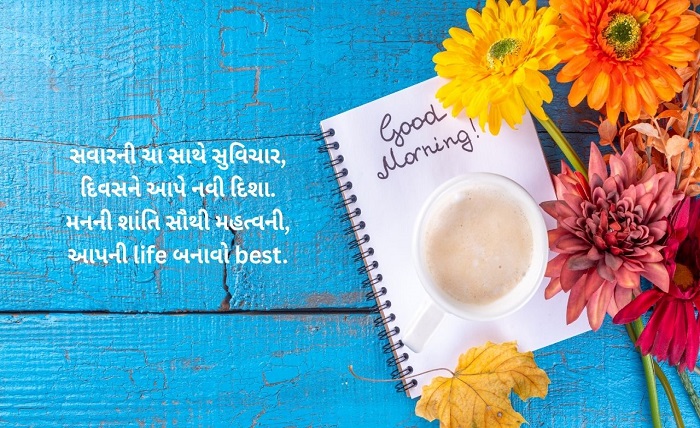 સવારની ચા સાથે સુવિચાર,
દિવસને આપે નવી દિશા.
મનની શાંતિ સૌથી મહત્વની,
આપની life બનાવો best.
Good
Morning!